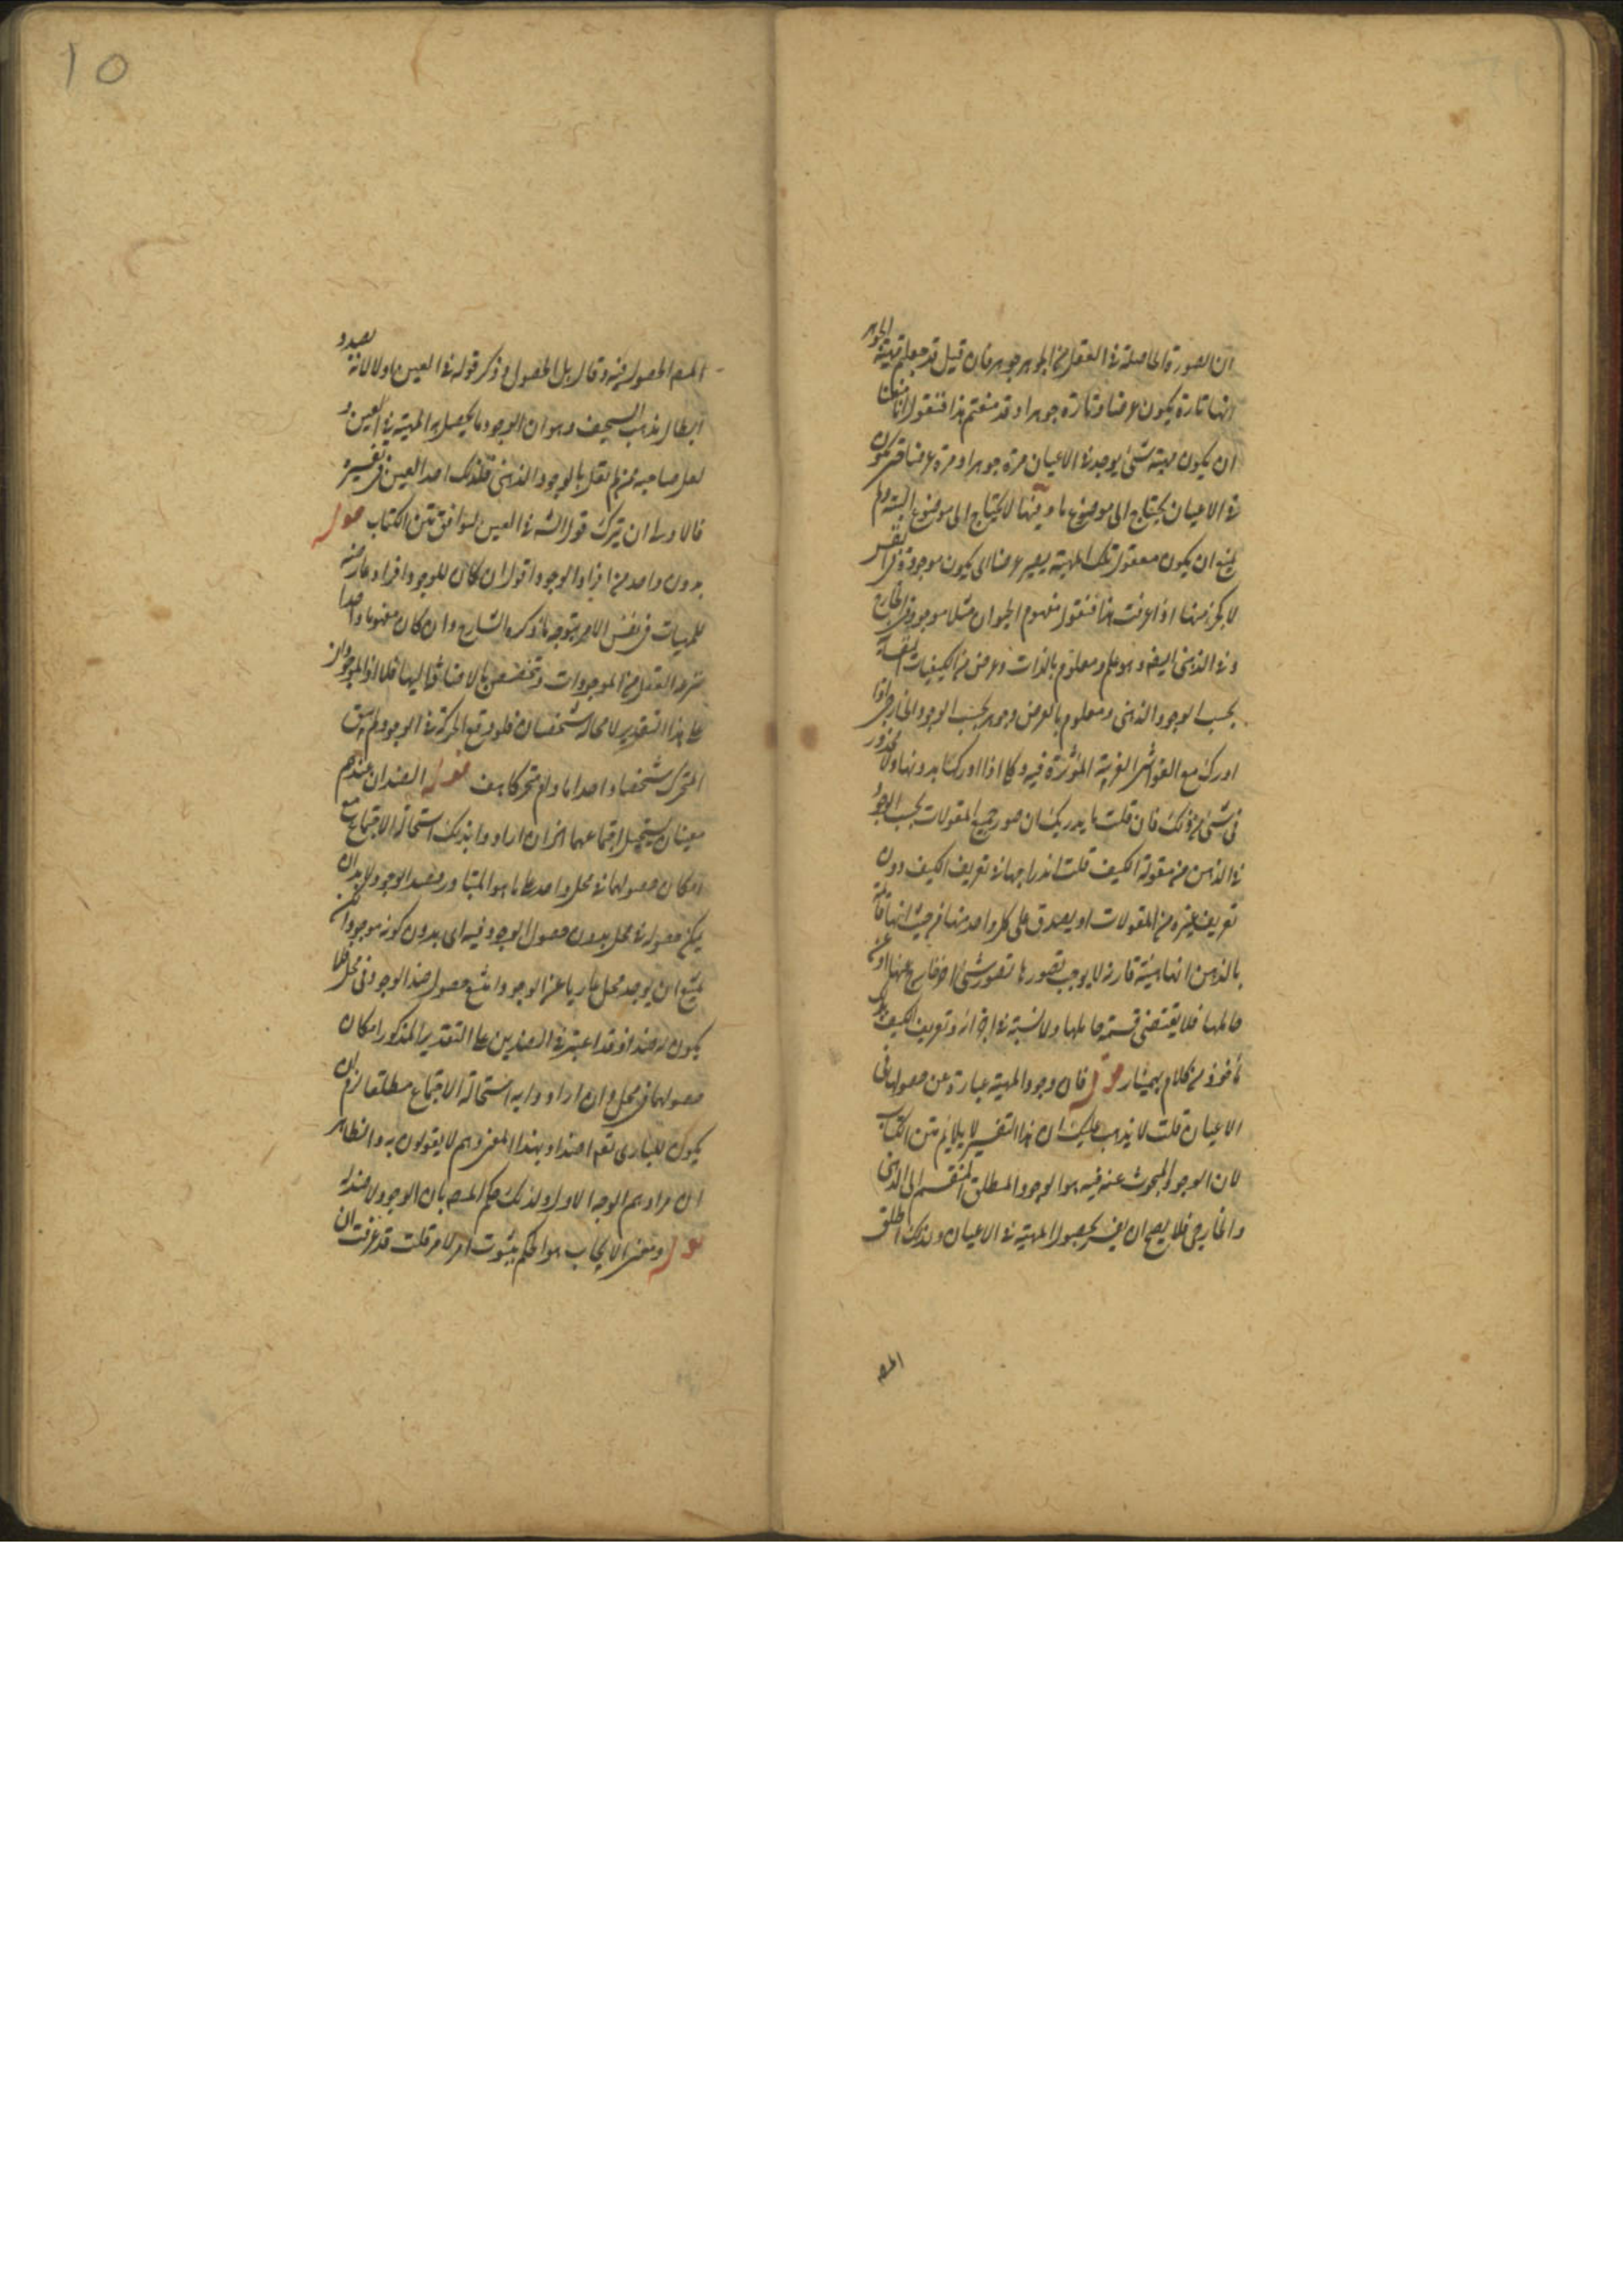 ان الصورة الحاصلة فى العقل من الجوهر جوهر فان قيل قد جعلتم مهية الجوهر
انها تارة يكون عرضا وتارة جوهرا وقد منعتم هذا فنقول انا منعنا
ان يكون مهية شئ يوجد فى الاعيان مرة جوهرا ومرة عرضا حتى تكون
فى الاعيان يحتاج الى موضوع ما وفيها لا يحتاج الى موضوع البتة ولم
يمنع ان يكون معقول تلك المهية يصير عرضا اى يكون موجودة فى النفس
لا كجزء منها اذا عرفت هذا فنقول مفهوم الحيوان مثلا موجود فى الخارج
وفى الذهن ايضا وهو علم ومعلوم بالذات وعرض من الكيفيات النفسانية
بحسب الوجود الذهنى ومعلوم بالعرض وجوهر بحسب الوجود الخارجى اذا
ادرك مع الغواشى الغريبة المؤثرة فيه وكلى اذا ادرك بدونها ولا محذور
فى شئ من ذلك فان قلت ما يدريك ان صور جميع المقولات بحسب الوجود
فى الذهن من مقولة الكيف قلت اندراجها فى تعريف الكيف دون
تعريف غيره من المقولات او يصدق على كل واحد منها من حيث انها قائمة
بالذهن انها هيئة قارة لا يوجب تصورها تصور شئ خارج عنها وعن
حاملها فلا يقتضى قسمة حاملها ولا نسبة فى اجزائه وتعريف الكيف بذلك
مأخوذ من كلام بهمنيار قوله فان وجود المهية عبارة عن حصولها فى
الاعيان قلت لا يذهب عليك ان هذا التفسير لا يلائم متن الكتاب
لان الوجود المبحوث عنه فيه هو الوجود المطلق المنقسم الى الذهنى
والخارجى فلا يصح ان يفسر بحصول المهية فى الاعيان ولذلك اطلق
المص
المص الحصول فيه وقال بل الحصول وذكر قوله فى العين اولا لانه بصدد
ابطال مذهب السخيف وهو ان الوجود ما يحصل به المهية فى العين و
لعل صاحبه ممن لم يقل بالوجود الذهنى فلذلك اخذ العين فى تفسيره
فالاولى ان يترك قول الش فى العين ليوافق متن الكتاب قوله
بدون واحد من افراد الوجود اقول ان كان للوجود افراد عارضة
للمهيات فى نفس الامر يتوجه ما ذكره الشارح وان كان مفهوما واحدا
ينتزعه العقل من الموجودات وتخصص بالاضافة اليها فلا اذ الموجودان
على هذا التقدير لا محالة شخصان فلو وقع الحركة فى الوجود لم يبق
المتحرك شخصا واحدا ولم متحركا هف قوله الضدان عندهم
معنيان يستحيل اجتماعهما اقول ان ارادوا بذلك استحالة الاجتماع مع
امكان حصولهما فى محل واحد على ما هو المتبادر فضد الوجود لابد ان
يمكن حصوله فى محل بدون حصول الوجود فيه اى بدون كونه موجودا لكن
يمتنع ان يوجد محل عاريا عن الوجود امتنع حصول ضد الوجود فى محل فلا
يكون له ضد اذ قد اعتبر فى الضدين على التقدير المذكور امكان
حصولهما فى محل وان ارادوا به استحالة الاجتماع مطلقا لزم ان
يكون للبارى تعم اضداد بهذا المعنى وهم لا يقولون به والظاهر
ان مرادهم الوجه الاول ولذلك حكم المص بان الوجود لا ضد له
قوله ومعنى الايجاب هو الحكم بثبوت امر لامر قلت قد عرفت ان
10